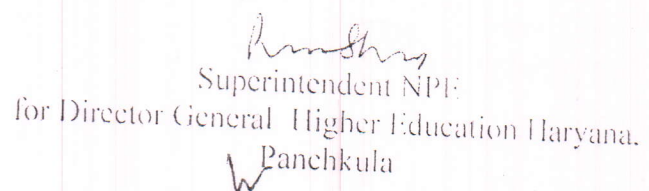 Superintendent NPE
for Director General Higher Education Haryana.
Panchkula